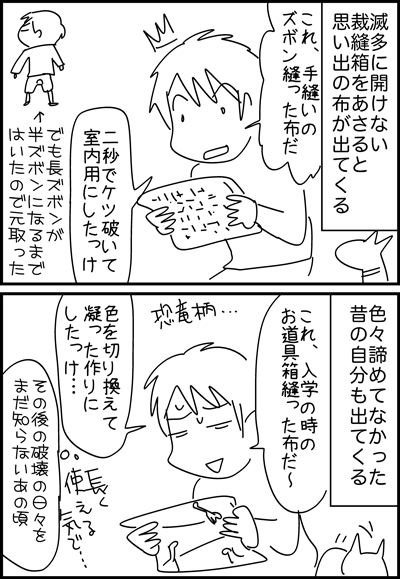 滅多に開けない
裁縫箱をあさると
思い出の布が出てくる
これ、手縫いの
ズボン縫った布だ
二秒でケツ破いて
室内用にしたっけ
でも長ズボンが
半ズボンになるまで
はいたので元取った
色々諦めてなかった
昔の自分も出てくる
これ、入学の時の
お道具箱縫った布だ～
恐竜柄…
色を切り換えて
凝った作りに
したっけ…
長く
使える
気で…
その後の破壊の日々を
まだ知らないあの頃